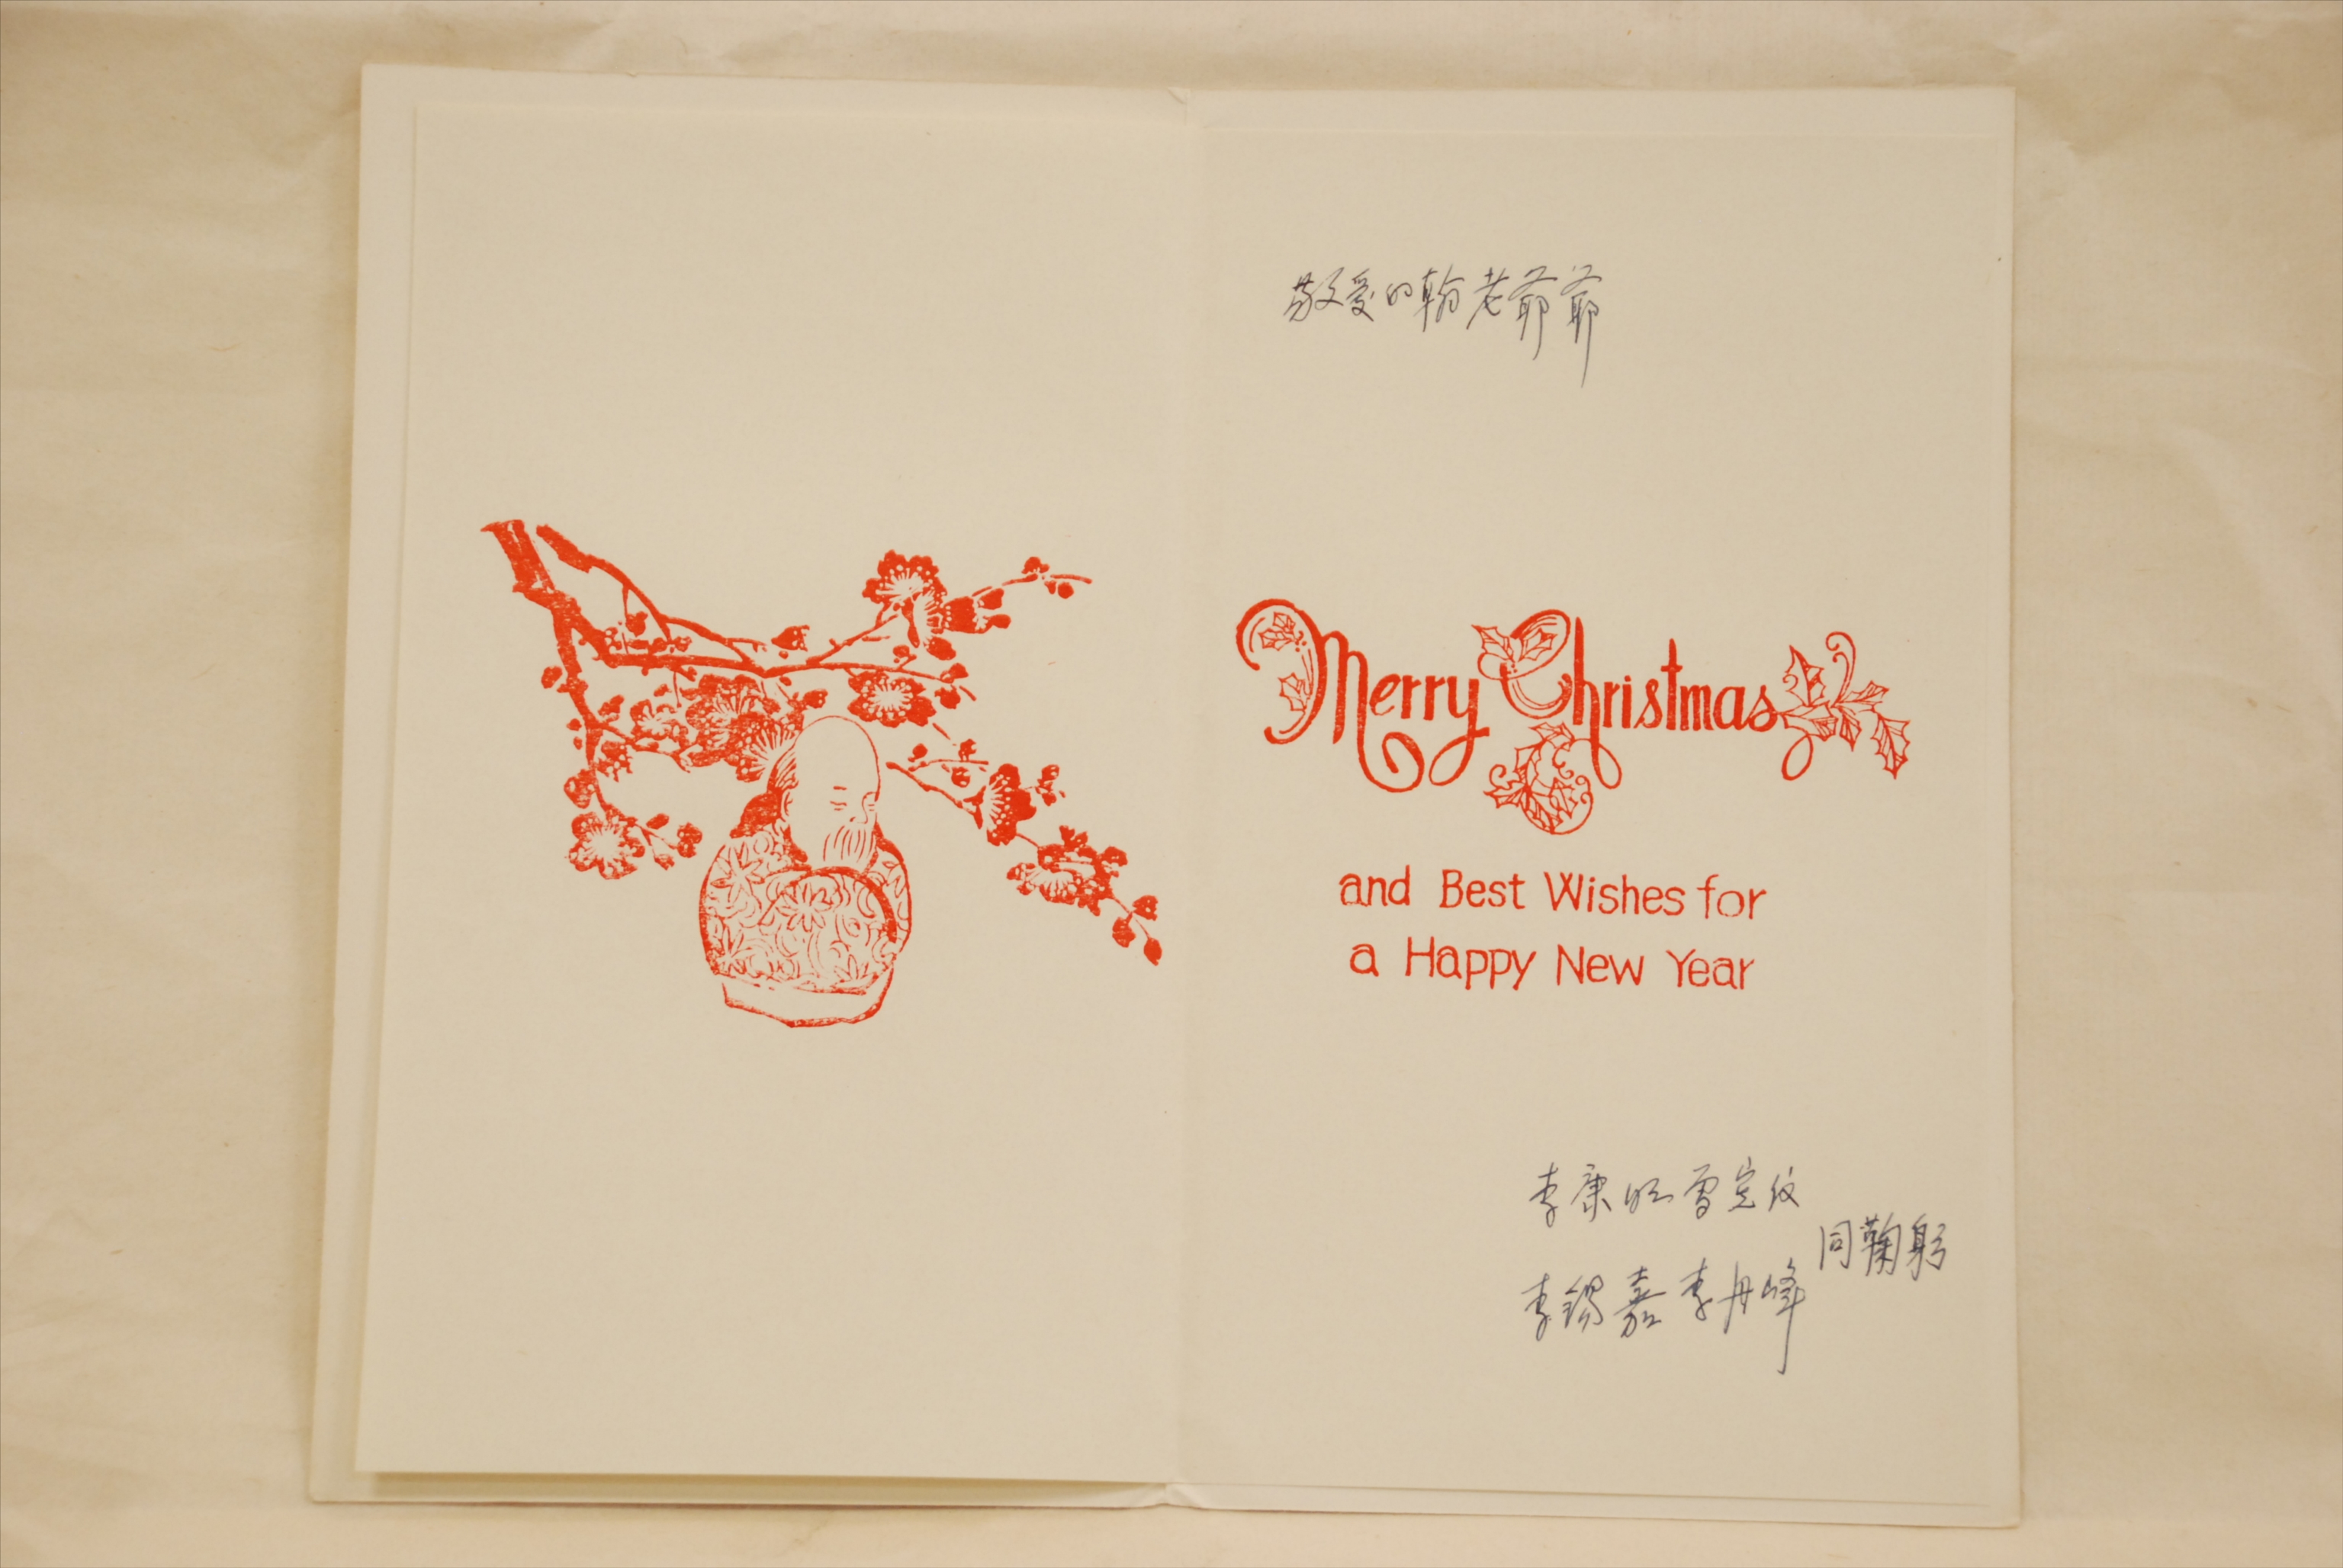 敬爱的翰老爷爷
Merry Christmas
and Best Wishes for
a Happy New Year
李康 雪
李锡嘉 李丹峰
同鞠躬